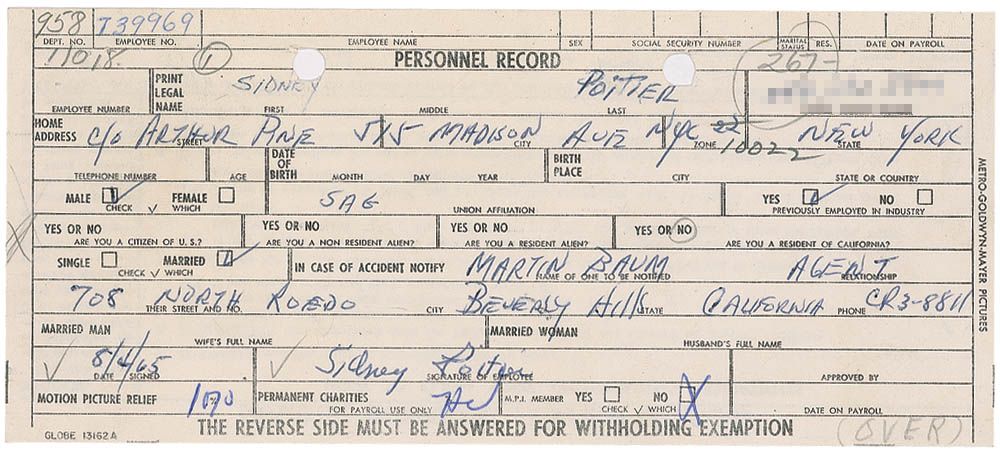 958 T39969
DEPT. NO. EMPLOYEE NO. EMPLOYEE NAME SEX SOCIAL SECURITY NUMBER MARITAL STATUS RES. DATE ON PAYROLL
11018. 1 PERSONNEL RECORD 267-
PRINT LEGAL NAME SIDNEY POITIER
EMPLOYEE NUMBER FIRST MIDDLE LAST
HOME ADDRESS c/o ARTHUR PINE 515 MADISON AVE NYC 22 NEW YORK
STREET CITY ZONE 10022 STATE
DATE OF BIRTH BIRTH PLACE
TELEPHONE NUMBER AGE MONTH DAY YEAR CITY STATE OR COUNTRY
MALE FEMALE SAG YES NO
CHECK √ WHICH UNION AFFILIATION PREVIOUSLY EMPLOYED IN INDUSTRY
YES OR NO YES OR NO YES OR NO YES OR NO
ARE YOU A CITIZEN OF U. S.? ARE YOU A NON RESIDENT ALIEN? ARE YOU A RESIDENT ALIEN? ARE YOU A RESIDENT OF CALIFORNIA?
SINGLE MARRIED IN CASE OF ACCIDENT NOTIFY MARTIN BAUM AGENT
CHECK √ WHICH NAME OF ONE TO BE NOTIFIED RELATIONSHIP
708 NORTH ROEDO BEVERLY HIllS CALIFORNIA CR3-8811
THEIR STREET AND NO. CITY STATE PHONE
MARRIED MAN MARRIED WOMAN
WIFE'S FULL NAME HUSBAND'S FULL NAME
8/4/65 Sidney Poitier
DATE SIGNED SIGNATURE OF EMPLOYEE APPROVED BY
MOTION PICTURE RELIEF PERMANENT CHARITIES M.P.I. MEMBER YES NO X
FOR PAYROLL USE ONLY CHECK √ WHICH DATE ON PAYROLL
THE REVERSE SIDE MUST BE ANSWERED FOR WITHHOLDING EXEMPTION (OVER)
GLOBE 13162A
METRO-GOLDWYN-MAYER PICTURES